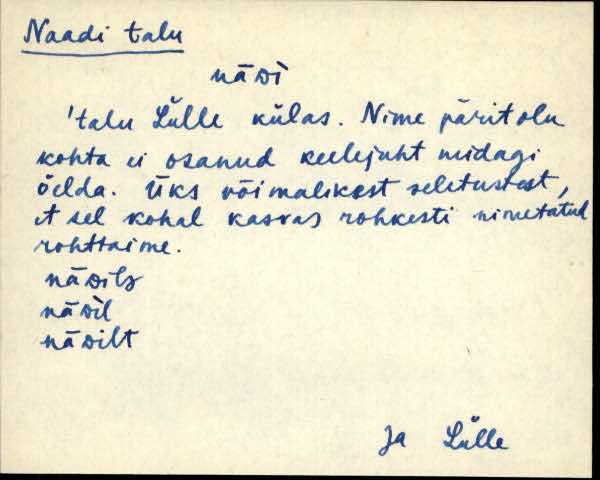 Naadi talu
nāᴅì
'talu Lülle külas. Nime päritolu
kohta ei osanud keelejuht midagi
öelda. Üks võimalikest seletustest,
et sel kohal kasvas rohkesti nimetatud
rohttaime.
nāᴅilᴣ
nāᴅìl
nāᴅilt
Ja Lülle